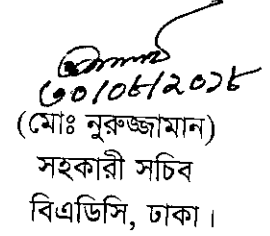 ৩০/০৮/২০১৮
(মোঃ নুরুজ্জামান)
সহকারী সচিব
বিএডিসি, ঢাকা।